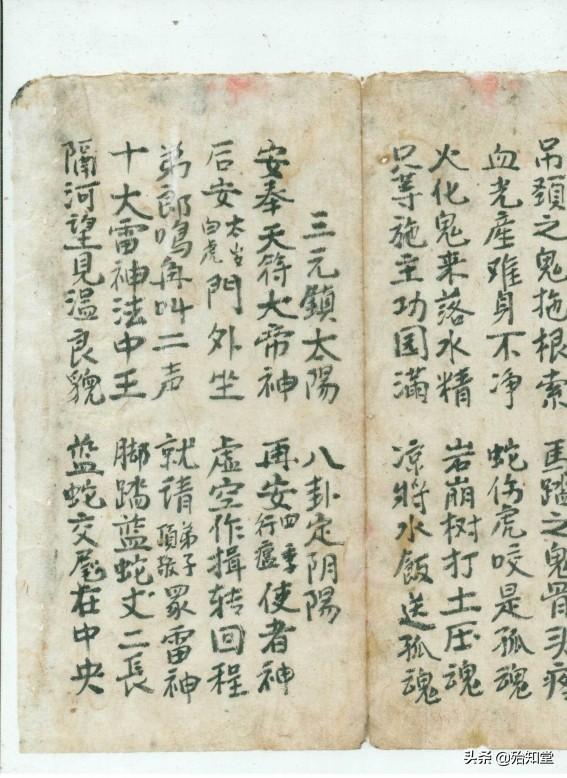 吊颈之鬼拖根索 馬踏之鬼骨头疼
血光產难身不净 蛇伤虎咬是孤魂
火化鬼来落水精 岩崩树打土压魂
只等施主功园滿 凉浆水飯送孤魂
三元鎮太陽 八卦定阴陽
安奉天符大帝神 再安四季行瘟使者神
后安太岁白虎門外坐 虚空作揖转回程
弟郎鳴角叫二声 就请弟子頂敬眾雷神
十大雷神法中王 脚踏蓝蛇丈二長
隔河望見温良貌 蓝蛇交尾在中央
头条 @殆知堂